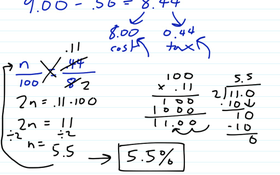 9.00 - .56 = 8.44
8.00 0.44
cost tax
.11
n .44
100 8 2
2n = .11 · 100
2n = 11
÷2 ÷2
n = 5.5
5.5%
100
x .11
100
100
11.00
5.5
2 11.0
10
10
-10
0